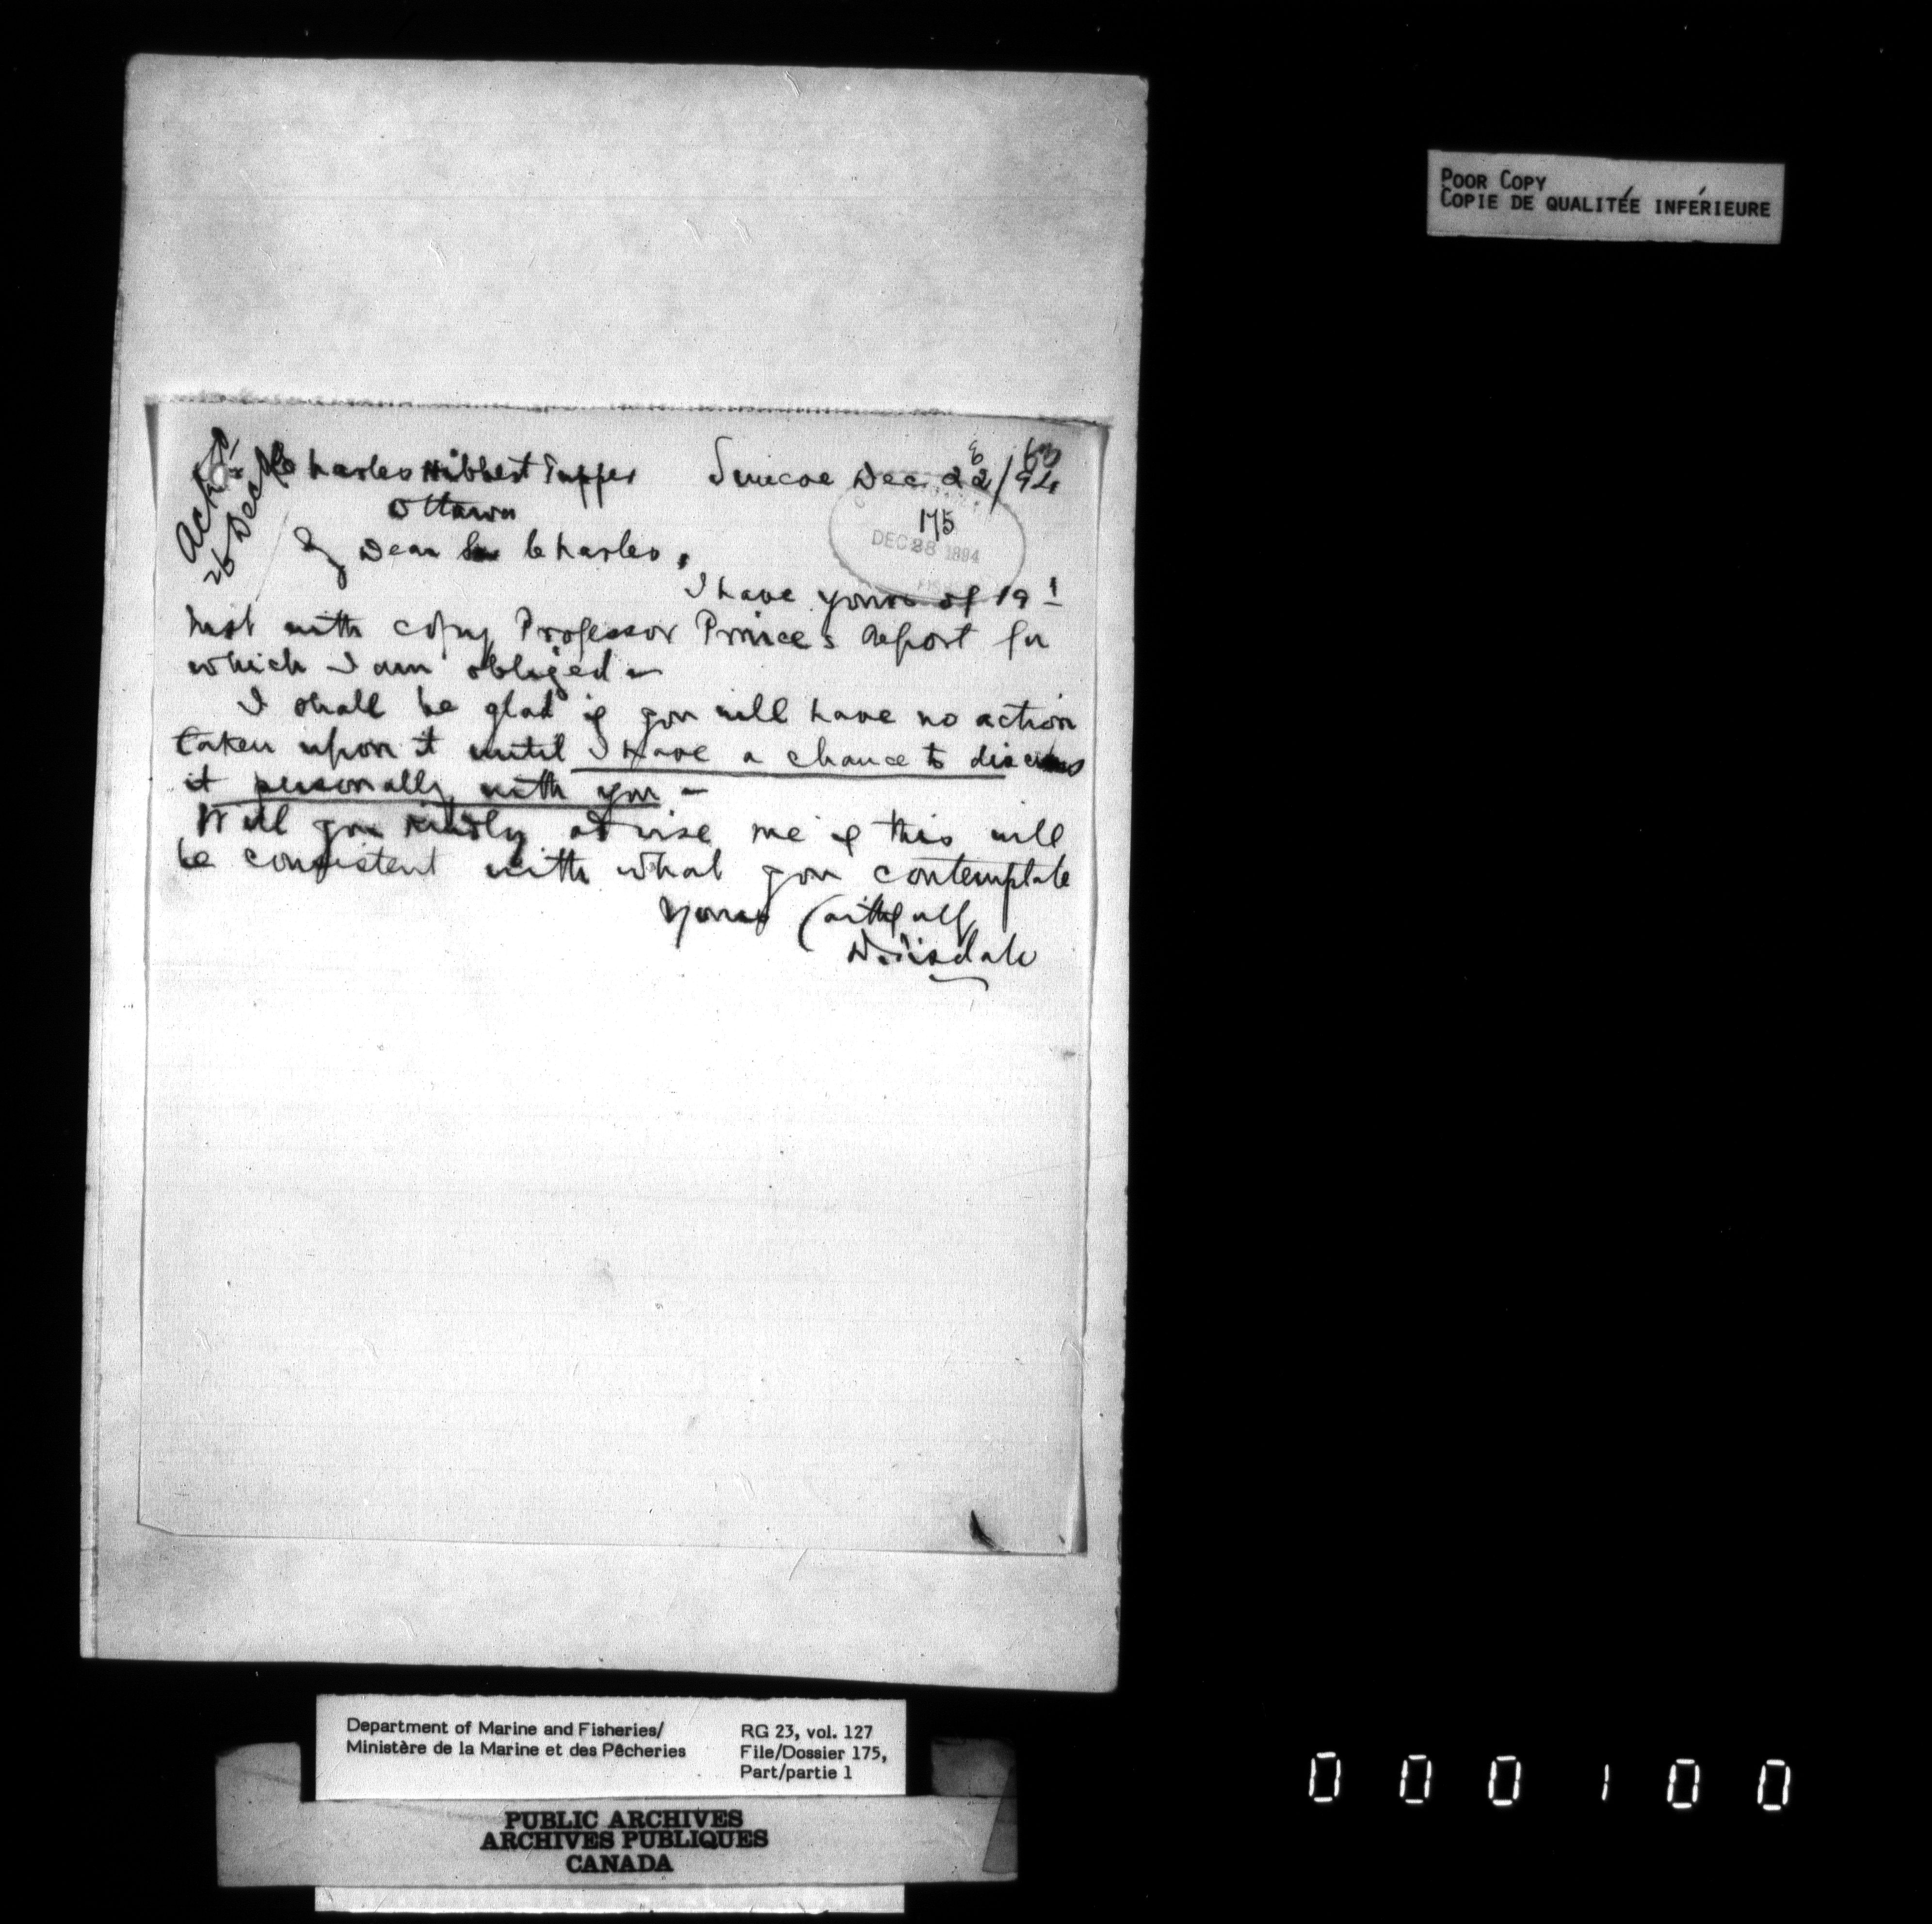 POOR COPY
COPIE DE QUALITÉE INFÉRIEURE
Ackd
26 Dec
Charles Hibbert Tupper Simcoe Dec 22/94
Ottawa
175
DEC 28 1894
My Dear Sir Charles,
I have yours of 19
Inst with copy Professor Prince's Report for
which I am obliged -
I shall be glad if you will have no action
taken upon it until I have a chance to discuss
it personally with you -
Will you kindly advise me if this will
be consistent with what you contemplate
Yours faithfully
Tisdale
Department of Marine and Fisheries/
Ministère de la Marine et des Pêcheries
RG 23, vol. 127
File/Dossier 175,
Part/partie 1
PUBLIC ARCHIVES
ARCHIVES PUBLIQUES
CANADA
000100